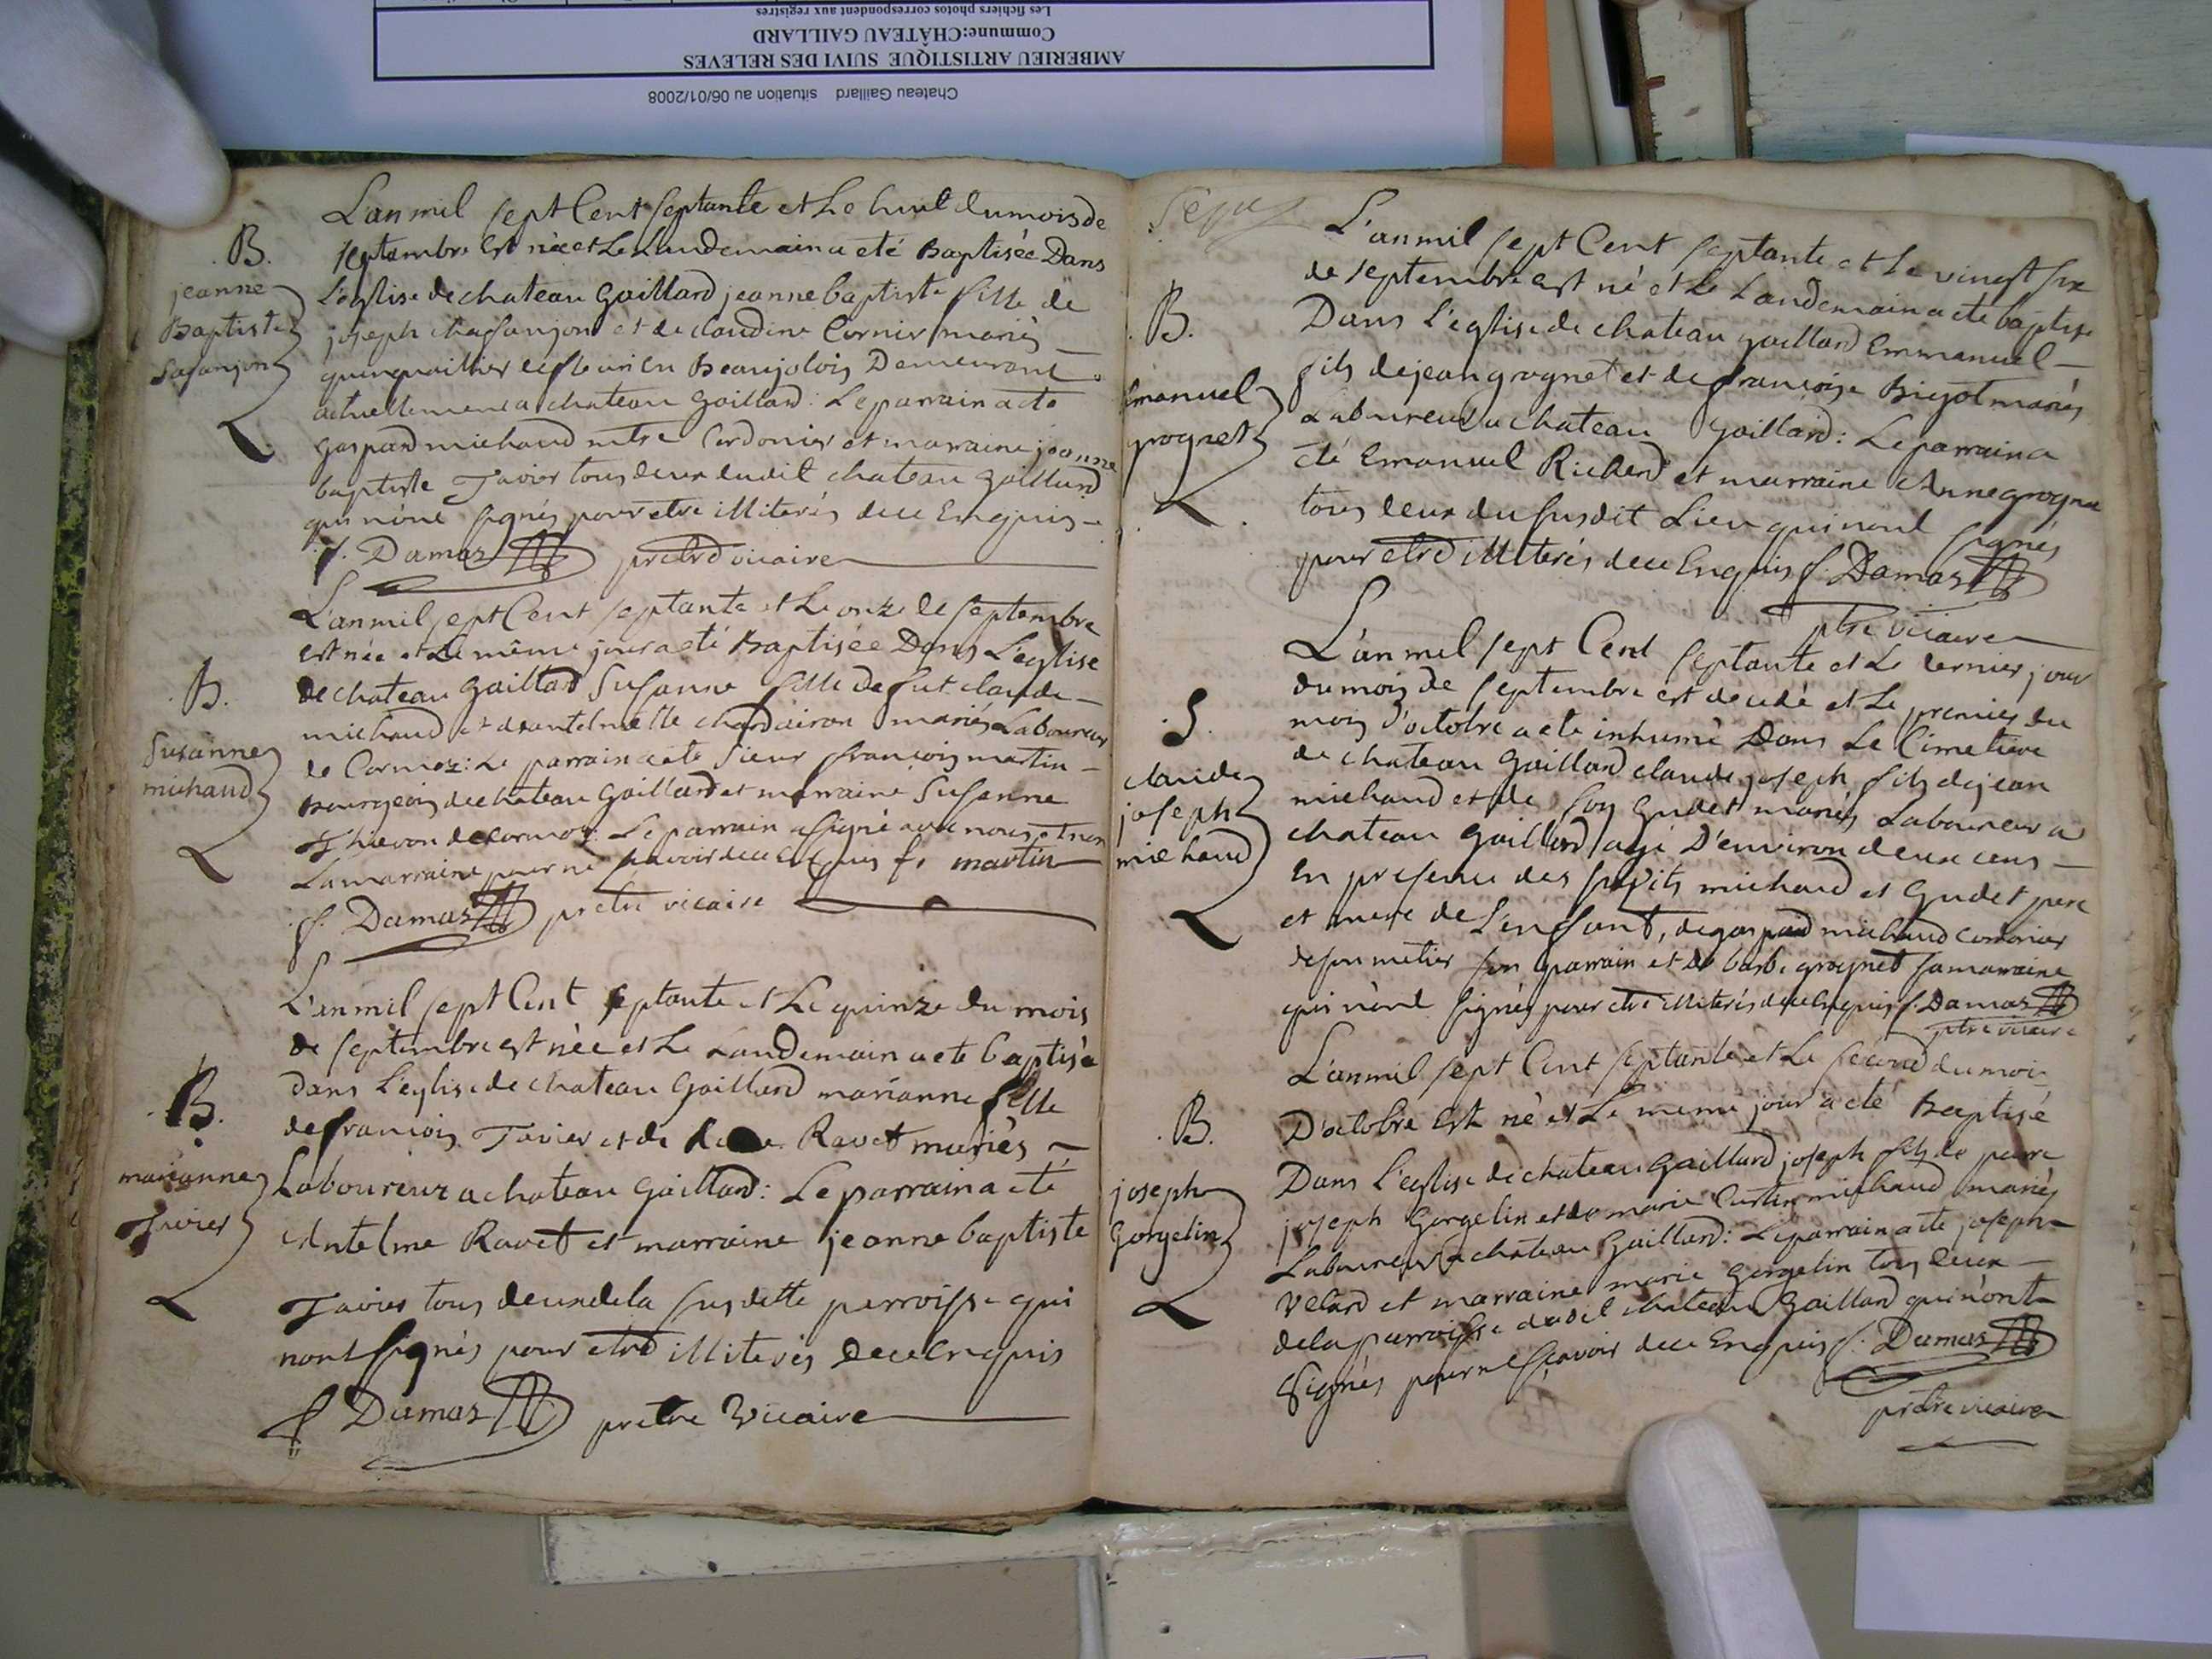 Chateau Gaillard situation au 06/01/2008
AMBERIEU ARTISTIQUE SUIVI DES RELEVES
Commune:CHÂTEAU GAILLARD
Les fichiers photos correspondent aux registres
B.
jeanne
Baptiste
Lasanjon
L'an mil sept Cent septante et Le huit du mois de
septembre Est née et Le Landemain a eté Baptisée Dans
L'eglise de chateau Gaillard jeanne baptiste fille de
joseph chasanjon et de claudine Cornier mariés
quinquaillier en Beaujolois Demeurant
actuellement a chateau Gaillard: Le parrain a eté
gaspard michaud mtre Cordonier et marraine jeanne
baptiste Tavier tous deux dudit chateau Gaillard
qui n'ont signés pour etre illiterés de ce Enquis
f. Damas pretre vicaire
B.
Susanne
michaud
L'an mil sept Cent septante et Le onze de septembre
est née et Le même jour a eté Baptisée Dans L'eglise
de chateau Gaillard Susanne fille de fut claude
michaud et d'antelmette chardairon mariés Laboureur
de Cormoz: Le parrain a eté Sieur françois martin
Bourgeois de chateau Gaillard et marraine Susanne
Thievon de Cormoz: Le parrain a signé avec nous et non
La marraine pour ne scavoir de ce Enquis f. martin
f. Damas pretre vicaire
B.
marianne
Tavier
L'an mil sept Cent septante et Le quinze du mois
de septembre est née et Le Landemain a ete baptisée
dans L'eglise de chateau Gaillard marianne fille
de francois Tavier et de Ravet mariés
Laboureur a chateau Gaillard: Le parrain a eté
Antelme Ravet et marraine jeanne baptiste
Tavier tous deux de la susditte parroisse qui
n'ont signés pour etre illiterés de ce Enquis
f. Damas pretre Vicaire
B.
Emanuel
grognet
L'an mil sept Cent septante et Le vingt six
de septembre est né et Le Landemain a ete baptisé
Dans L'eglise de chateau gaillard Emmanuel
fils de jean grognet et de françoise Bigot mariés
Laboureur a chateau Gaillard: Le parrain a
été Emanuel Richerd et marraine Anne grognet
tous deux du susdit Lieu qui n'ont signés
pour etre illiterés de ce Enquis f. Damas
ptre vicaire
S.
claude
joseph
michaud
L'an mil sept Cent septante et Le dernier jour
du mois de septembre est decedé et Le premier du
mois d'octobre a ete inhumé Dans Le Cimetiere
de chateau Gaillard claude joseph fils de jean
michaud et de Gudet mariés Laboureur a
chateau Gaillard agé D'environ deux ans
En presence des susdits michaud et Gudet pere
et mere de L'enfant, de gaspard michaud cordonier
de son metier son parrain et de barbe grognet sa marraine
qui n'ont signés pour etre illiterés de ce Enquis f. Damas
ptre vicaire
B.
joseph
Gorgelin
L'an mil sept Cent septante et Le second du mois
D'octobre Est né et Le meme jour a eté Baptisé
Dans L'eglise de chateau Gaillard joseph fils de pierre
joseph Gorgelin et de marie michaud mariés
Laboureur a chateau Gaillard: Le parrain a ete joseph
Velard et marraine marie gorgelin tous deux
de la parroisse dudit chateau Gaillard qui n'ont
signés pour ne sçavoir de ce Enquis f. Damas
pretre vicaire